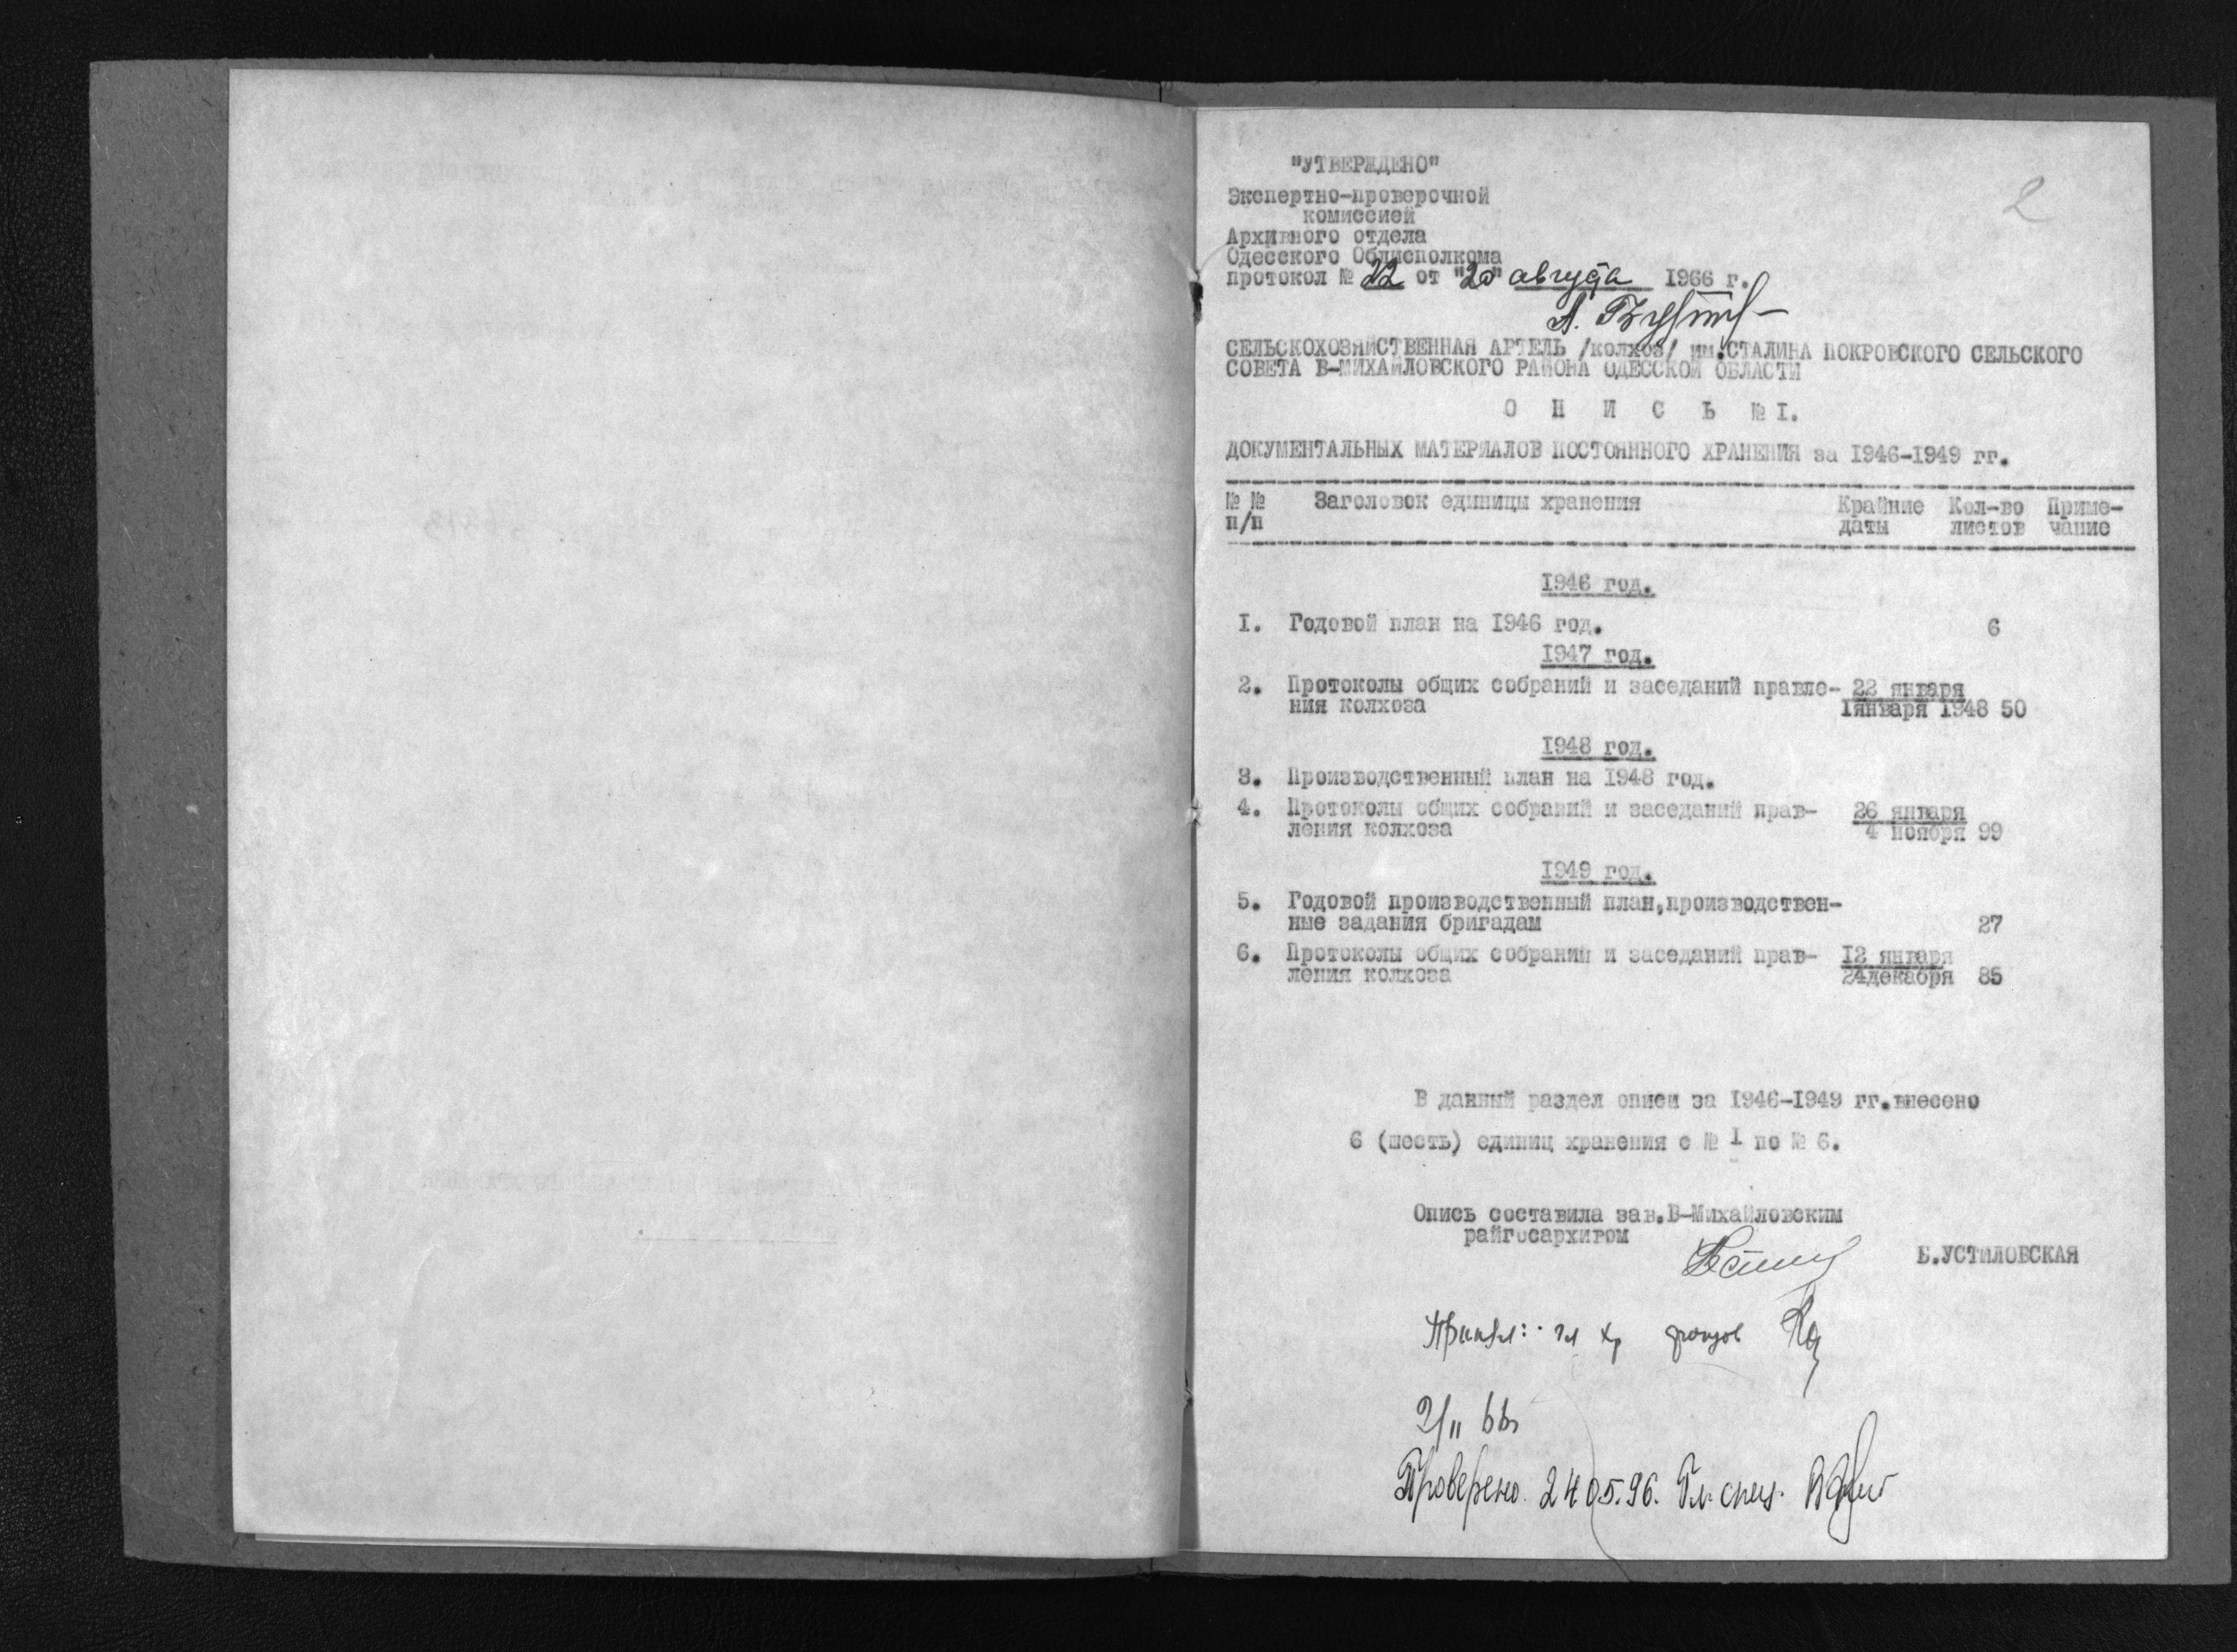 2
"УТВЕРЖДЕНО"
Экспертно-проверочной
комиссией
Архивного отдела
Одесского Облисполкома
протокол № 22 от "20" августа 1966 г.
СЕЛЬСКОХОЗЯЙСТВЕННАЯ АРТЕЛЬ /колхоз/ им.СТАЛИНА ПОКРОВСКОГО СЕЛЬСКОГО
СОВЕТА В-МИХАЙЛОВСКОГО РАЙОНА ОДЕССКОЙ ОБЛАСТИ
О П И С Ь № I.
ДОКУМЕНТАЛЬНЫХ МАТЕРИАЛОВ ПОСТОЯННОГО ХРАНЕНИЯ за 1946-1949 гг.
№ № Заголовок единицы хранения Крайние Кол-во Приме-
п/п даты листов чание
1946 год.
I. Годовой план на 1946 год. 6
1947 год.
2. Протоколы общих собраний и заседаний правле- 22 января
ния колхоза 1января 1948 50
1948 год.
3. Производственный план на 1948 год.
4. Протоколы общих собраний и заседаний прав- 26 января
ления колхоза 4 ноября 99
1949 год.
5. Годовой производственный план,производствен-
ные задания бригадам 27
6. Протоколы общих собраний и заседаний прав- 12 января
ления колхоза 24декабря 85
В данный раздел описи за 1946-1949 гг.внесено
6 (шесть) единиц хранения с № 1 по № 6.
Опись составила зав.В-Михайловским
райгосархивом
Б.УСТИЛОВСКАЯ
Проверено. 24.05.96. Гл. спец.